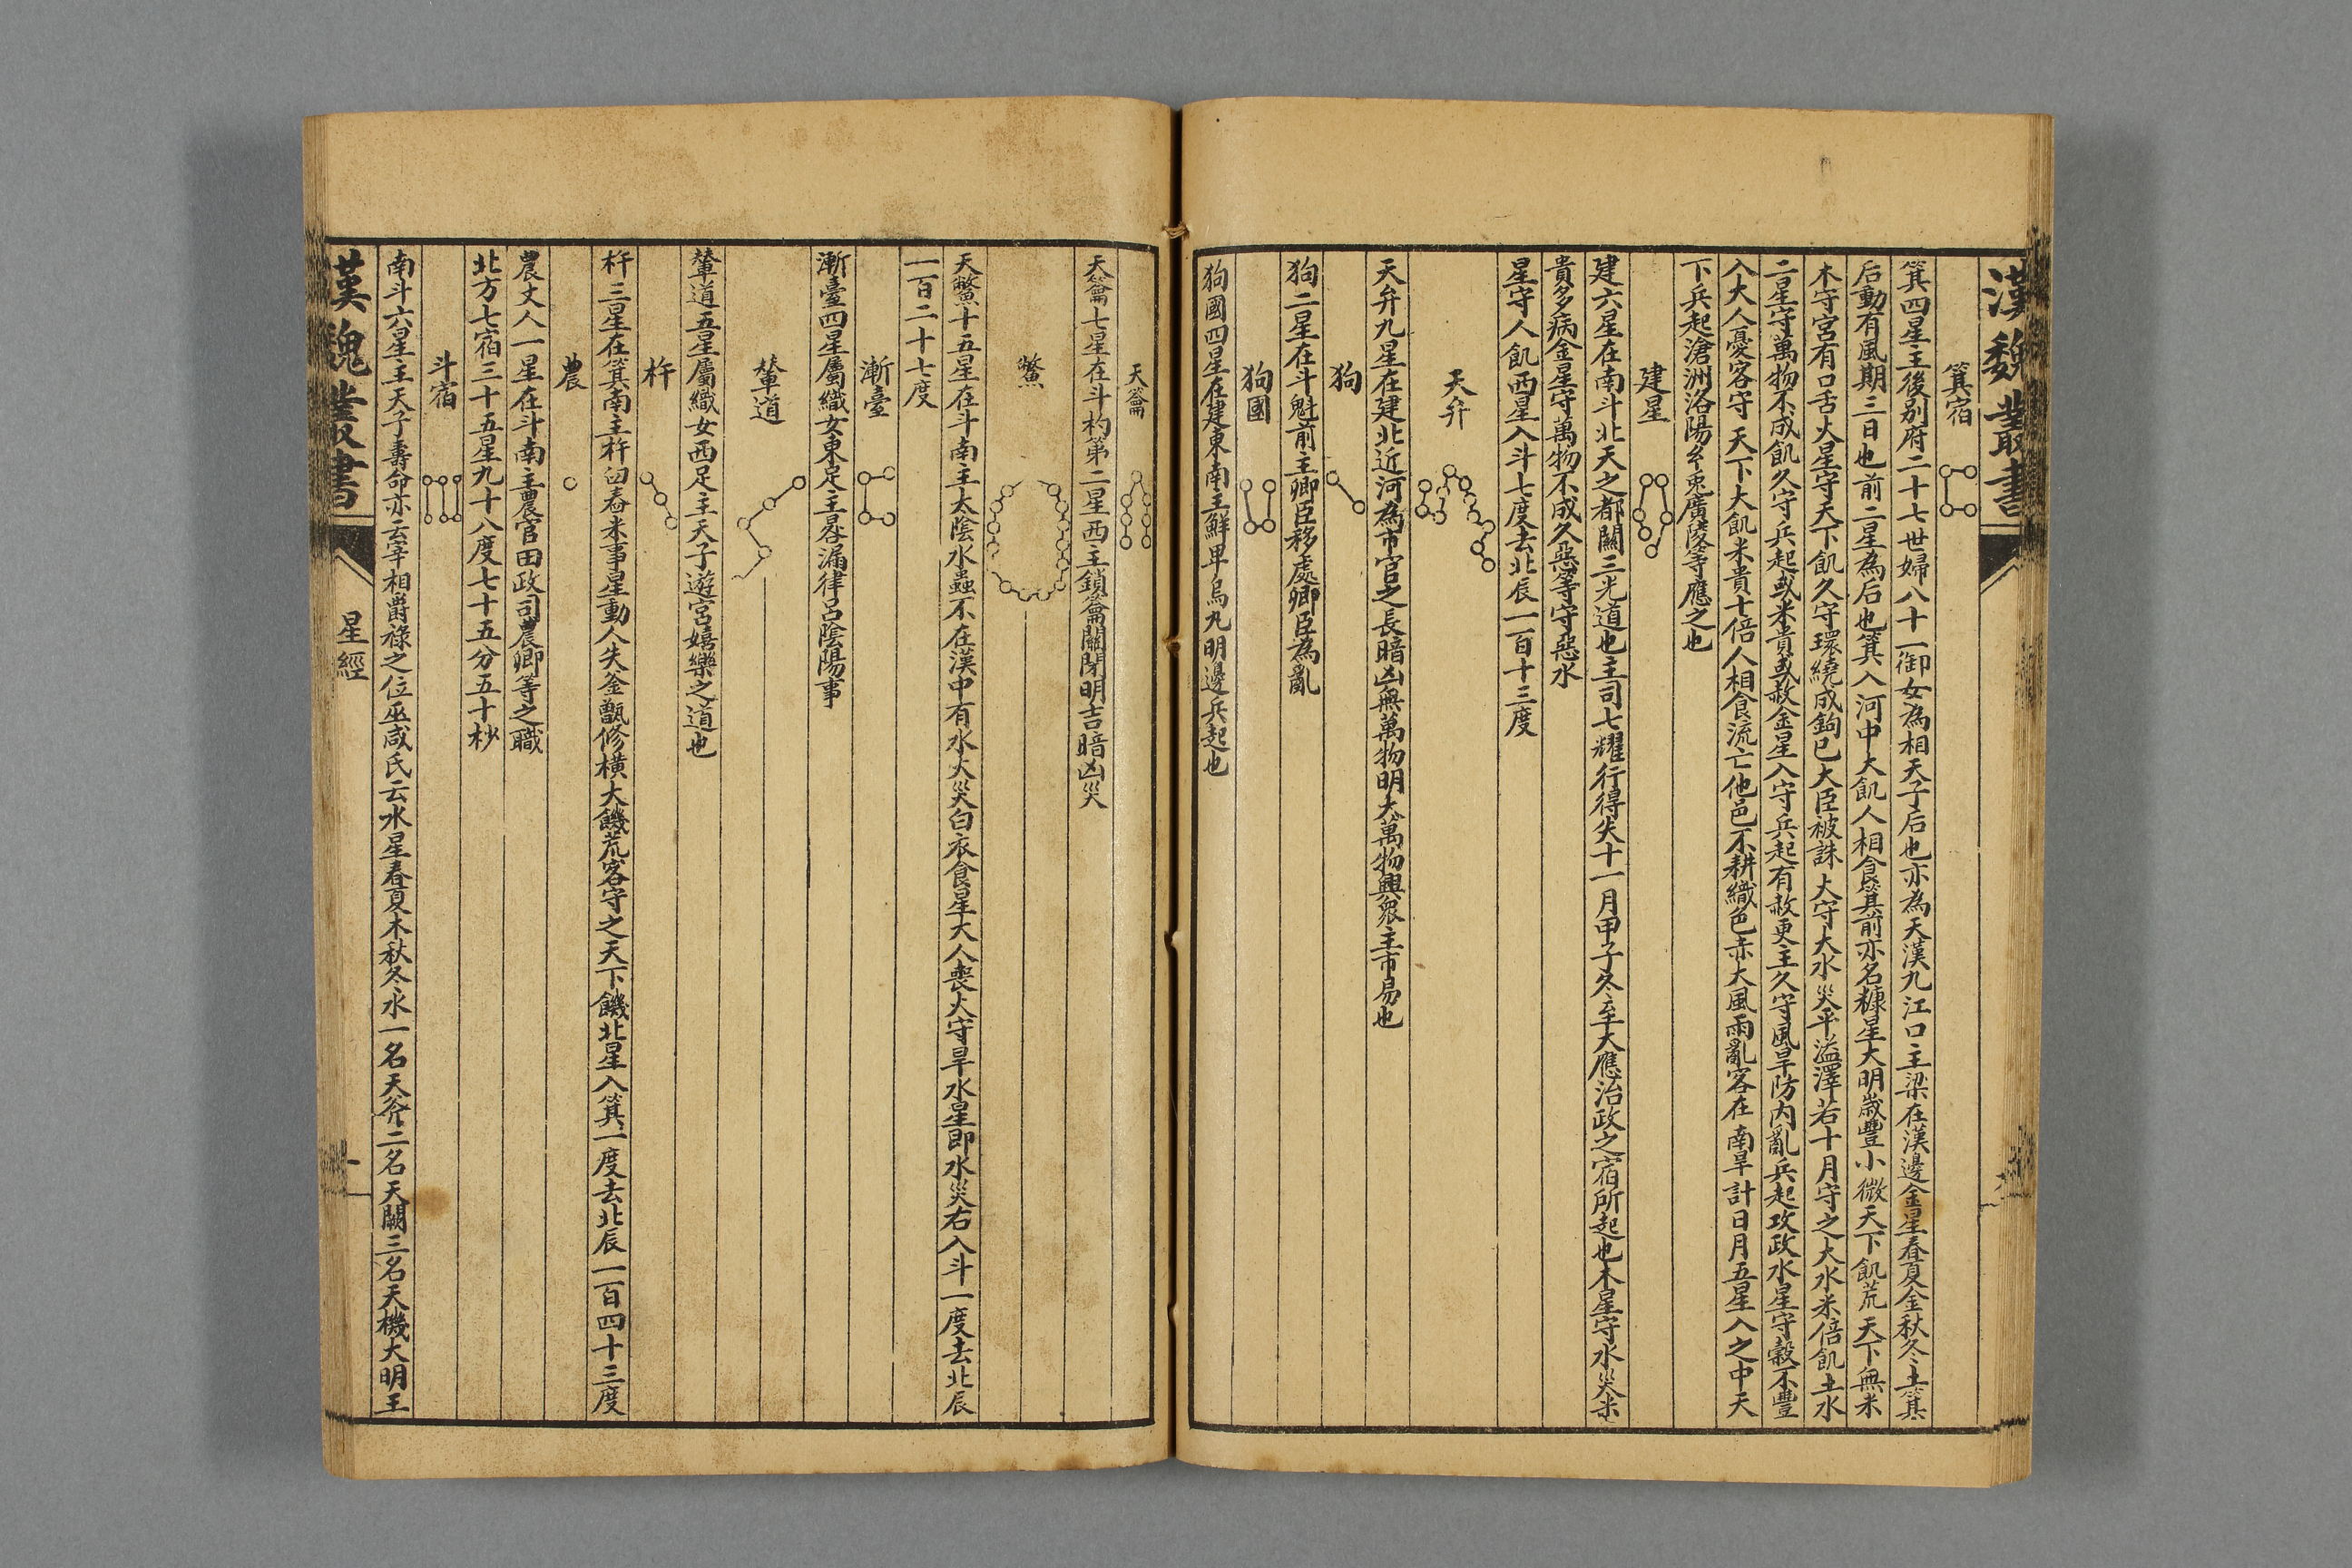 漢魏叢書
箕宿
箕四星主後别府二十七世婦八十一御女為相天子后也亦為天漢九江口主梁在漢邊金星春夏金秋冬土箕
后動有風期三日也前二星為后也箕入河中大飢人相食箕前亦名糠星大明歲豐小微天下飢荒天下無米
木守宮有口舌火星守天下飢久守環繞成鉤已大臣被誅火守大水災平溢澤若十月守之大水米倍飢土水
二星守萬物不成飢久守兵起或米貴或赦金星入守兵起有赦更主久守風旱防内亂兵起攻政水星守穀不豐
入大人憂客守天下大飢米貴十倍人相食流亡他邑不耕織色赤大風雨亂客在南旱計日月五星入之中天
下兵起滄洲洛陽乡兎廣陵等應之也
建星
建六星在南斗北天之都關三光道也主司七耀行得失十一月甲子冬至大應治政之宿所起也木星守水災米
貴多病金星守萬物不成久惡等守惡水
星守人飢西星入斗七度去北辰一百十三度
天弁
天弁九星在建北近河為市官之長暗凶無萬物明大萬物興衆主市易也
狗
狗二星在斗魁前主卿臣移處卿臣為亂
狗國
狗國四星在建東南主鮮卑烏丸明邊兵起也
天籥
天籥七星在斗杓第二星西主鎖籥關閉明吉暗凶災
鱉
天鱉十五星在斗南主太陰水蟲不在漢中有水火災白衣食星大人喪火守旱水星即水災右入斗一度去北辰
一百二十七度
漸臺
漸臺四星屬織女東足主晷漏律呂陰陽事
輦道
輦道五星屬織女西足主天子遊宮嬉樂之道也
杵
杵三星在箕南主杵臼舂米事星動人失釜甑修橫大饑荒客守之天下饑北星入箕一度去北辰一百四十三度
農
農丈人一星在斗南主農官田政司農卿等之職
北方七宿三十五星九十八度七十五分五十杪
斗宿
南斗六星主天子壽命亦云宰相爵祿之位巫咸氏云水星春夏木秋冬水一名天斧二名天闕三名天機大明王
漢魏叢書
星經